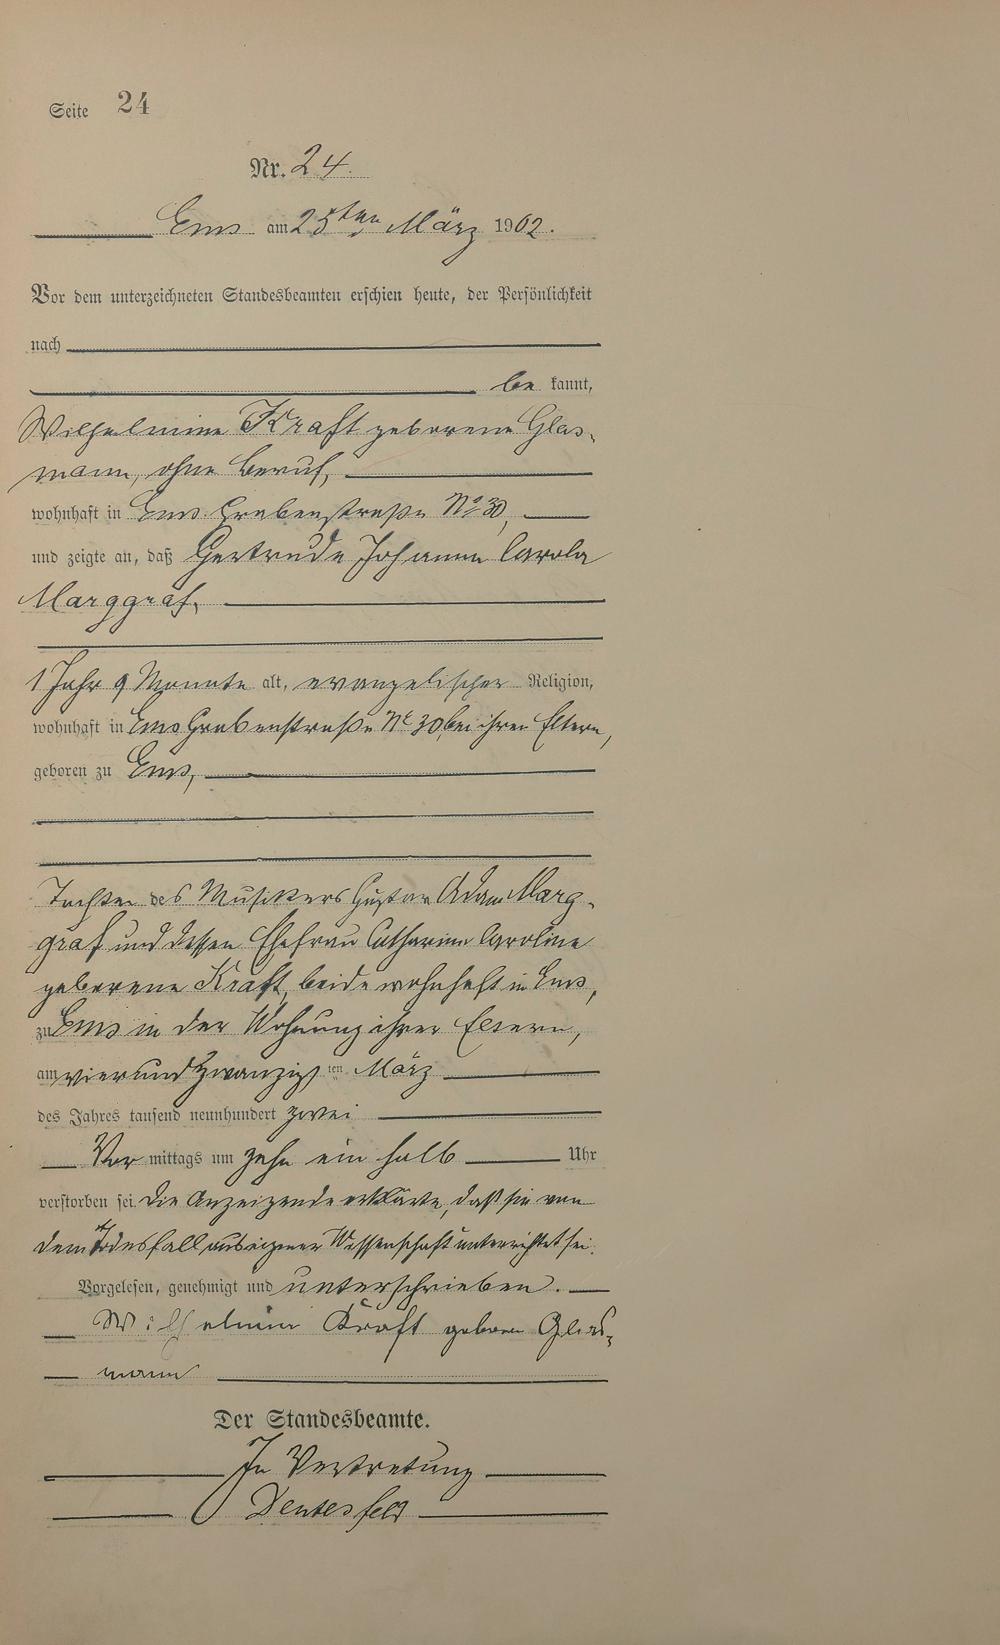 Seite 24
Nr. 24.
Ems am 25ten März 1902.
Vor dem unterzeichneten Standesbeamten erschien heute, der Persönlichkeit
nach
be kannt,
Wilhelmine Kraft geborene Glas-
mann, ohne Beruf,
wohnhaft in Ems Grabenstraße No 30,
und zeigte an, daß Gertrude Johanna Carola
Marggraf,
1 Jahr 9 Monate alt, evangelischer Religion,
wohnhaft in Ems Grabenstraße No 30 bei ihren Eltern,
geboren zu Ems,
Tochter des Musikers Gustav Adam Marg-
graf und dessen Ehefrau Catharina Caroline
geborene Kraft, beide wohnhaft in Ems,
zu Ems in der Wohnung ihrer Eltern,
am vierundzwanzigsten März
des Jahres tausend neunhundert zwei
Vor mittags um zehn ein halb Uhr
verstorben sei. Die Anzeigende erklärte, daß sie von
dem Todesfall aus eigener Wissenschaft unterrichtet sei.
Vorgelesen, genehmigt und unterschrieben.
Wilhelmine Kraft geboren Glas-
mann
Der Standesbeamte.
In Vertretung